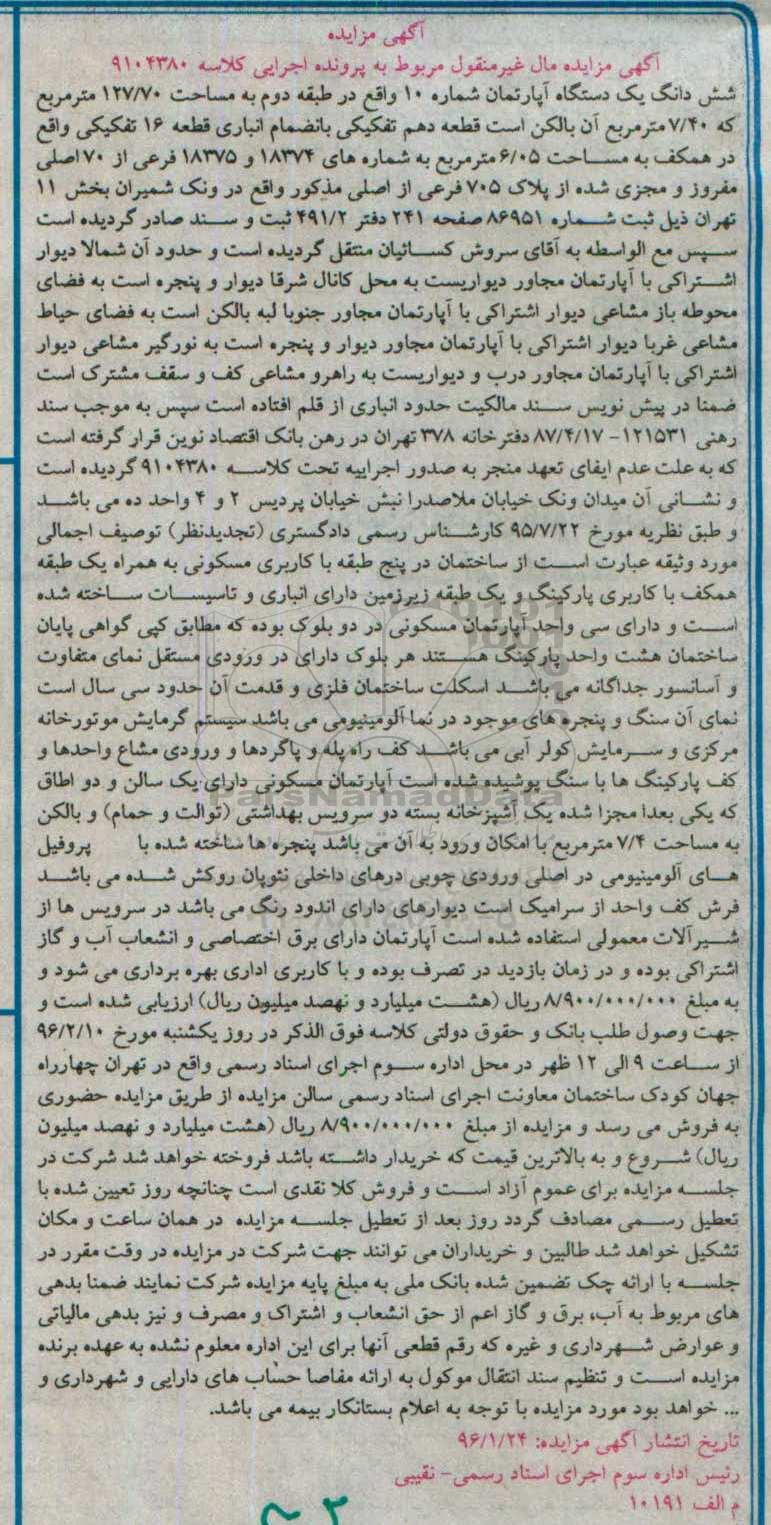 آگهی مزایده
آگهی مزایده مال غیرمنقول مربوط به پرونده اجرایی کلاسه ۹۱۰۴۳۸۰
شش دانگ یک دستگاه آپارتمان شماره ۱۰ واقع در طبقه دوم به مساحت ۱۲۷/۷۰ مترمربع
که ۷/۴۰ مترمربع آن بالکن است قطعه دهم تفکیکی بانضمام انباری قطعه ۱۶ تفکیکی واقع
در همکف به مساحت ۶/۰۵ مترمربع به شماره های ۱۸۳۷۴ و ۱۸۳۷۵ فرعی از ۷۰ اصلی
مفروز و مجزی شده از پلاک ۷۰۵ فرعی از اصلی مذکور واقع در ونک شمیران بخش ۱۱
تهران ذیل ثبت شماره ۸۶۹۵۱ صفحه ۲۴۱ دفتر ۴۹۱/۲ ثبت و سند صادر گردیده است
سپس مع الواسطه به آقای سروش کسائیان منتقل گردیده است و حدود آن شمالا دیوار
اشتراکی با آپارتمان مجاور دیواریست به محل کانال شرقا دیوار و پنجره است به فضای
محوطه باز مشاعی دیوار اشتراکی با آپارتمان مجاور جنوبا لبه بالکن است به فضای حیاط
مشاعی غربا دیوار اشتراکی با آپارتمان مجاور دیوار و پنجره است به نورگیر مشاعی دیوار
اشتراکی با آپارتمان مجاور درب و دیواریست به راهرو مشاعی کف و سقف مشترک است
ضمنا در پیش نویس سند مالکیت حدود انباری از قلم افتاده است سپس به موجب سند
رهنی ۱۲۱۵۳۱- ۸۷/۴/۱۷ دفترخانه ۳۷۸ تهران در رهن بانک اقتصاد نوین قرار گرفته است
که به علت عدم ایفای تعهد منجر به صدور اجراییه تحت کلاسه ۹۱۰۴۳۸۰ گردیده است
و نشانی آن میدان ونک خیابان ملاصدرا نبش خیابان پردیس ۲ و ۴ واحد ده می باشد
و طبق نظریه مورخ ۹۵/۷/۲۲ کارشناس رسمی دادگستری (تجدیدنظر) توصیف اجمالی
مورد وثیقه عبارت است از ساختمان در پنج طبقه با کاربری مسکونی به همراه یک طبقه
همکف با کاربری پارکینگ و یک طبقه زیرزمین دارای انباری و تاسیسات ساخته شده
است و دارای سی واحد آپارتمان مسکونی در دو بلوک بوده که مطابق کپی گواهی پایان
ساختمان هشت واحد پارکینگ هستند هر بلوک دارای در ورودی مستقل نمای متفاوت
و آسانسور جداگانه می باشد اسکلت ساختمان فلزی و قدمت آن حدود سی سال است
نمای آن سنگ و پنجره های موجود در نما آلومینیومی می باشد سیستم گرمایش موتورخانه
مرکزی و سرمایش کولر آبی می باشد کف راه پله و پاگردها و ورودی مشاع واحدها و
کف پارکینگ ها با سنگ پوشیده شده است آپارتمان مسکونی دارای یک سالن و دو اطاق
که یکی بعدا مجزا شده یک آشپزخانه بسته دو سرویس بهداشتی (توالت و حمام) و بالکن
به مساحت ۷/۴ مترمربع با امکان ورود به آن می باشد پنجره ها ساخته شده با پروفیل
های آلومینیومی در اصلی ورودی چوبی درهای داخلی نئوپان روکش شده می باشد
فرش کف واحد از سرامیک است دیوارهای دارای اندود رنگ می باشد در سرویس ها از
شیرآلات معمولی استفاده شده است آپارتمان دارای برق اختصاصی و انشعاب آب و گاز
اشتراکی بوده و در زمان بازدید در تصرف بوده و با کاربری اداری بهره برداری می شود و
به مبلغ ۸/۹۰۰/۰۰۰/۰۰۰ ریال (هشت میلیارد و نهصد میلیون ریال) ارزیابی شده است و
جهت وصول طلب بانک و حقوق دولتی کلاسه فوق الذکر در روز یکشنبه مورخ ۹۶/۲/۱۰
از ساعت ۹ الی ۱۲ ظهر در محل اداره سوم اجرای اسناد رسمی واقع در تهران چهارراه
جهان کودک ساختمان معاونت اجرای اسناد رسمی سالن مزایده از طریق مزایده حضوری
به فروش می رسد و مزایده از مبلغ ۸/۹۰۰/۰۰۰/۰۰۰ ریال (هشت میلیارد و نهصد میلیون
ریال) شروع و به بالاترین قیمت که خریدار داشته باشد فروخته خواهد شد شرکت در
جلسه مزایده برای عموم آزاد است و فروش کلا نقدی است چنانچه روز تعیین شده با
تعطیل رسمی مصادف گردد روز بعد از تعطیل جلسه مزایده در همان ساعت و مکان
تشکیل خواهد شد طالبین و خریداران می توانند جهت شرکت در مزایده در وقت مقرر در
جلسه با ارائه چک تضمین شده بانک ملی به مبلغ پایه مزایده شرکت نمایند ضمنا بدهی
های مربوط به آب، برق و گاز اعم از حق انشعاب و اشتراک و مصرف و نیز بدهی مالیاتی
و عوارض شهرداری و غیره که رقم قطعی آنها برای این اداره معلوم نشده به عهده برنده
مزایده است و تنظیم سند انتقال موکول به ارائه مفاصا حساب های دارایی و شهرداری و
... خواهد بود مورد مزایده با توجه به اعلام بستانکار بیمه می باشد.
تاریخ انتشار آگهی مزایده: ۹۶/۱/۲۴
رئیس اداره سوم اجرای اسناد رسمی- نقیبی
م الف ۱۰۱۹۱